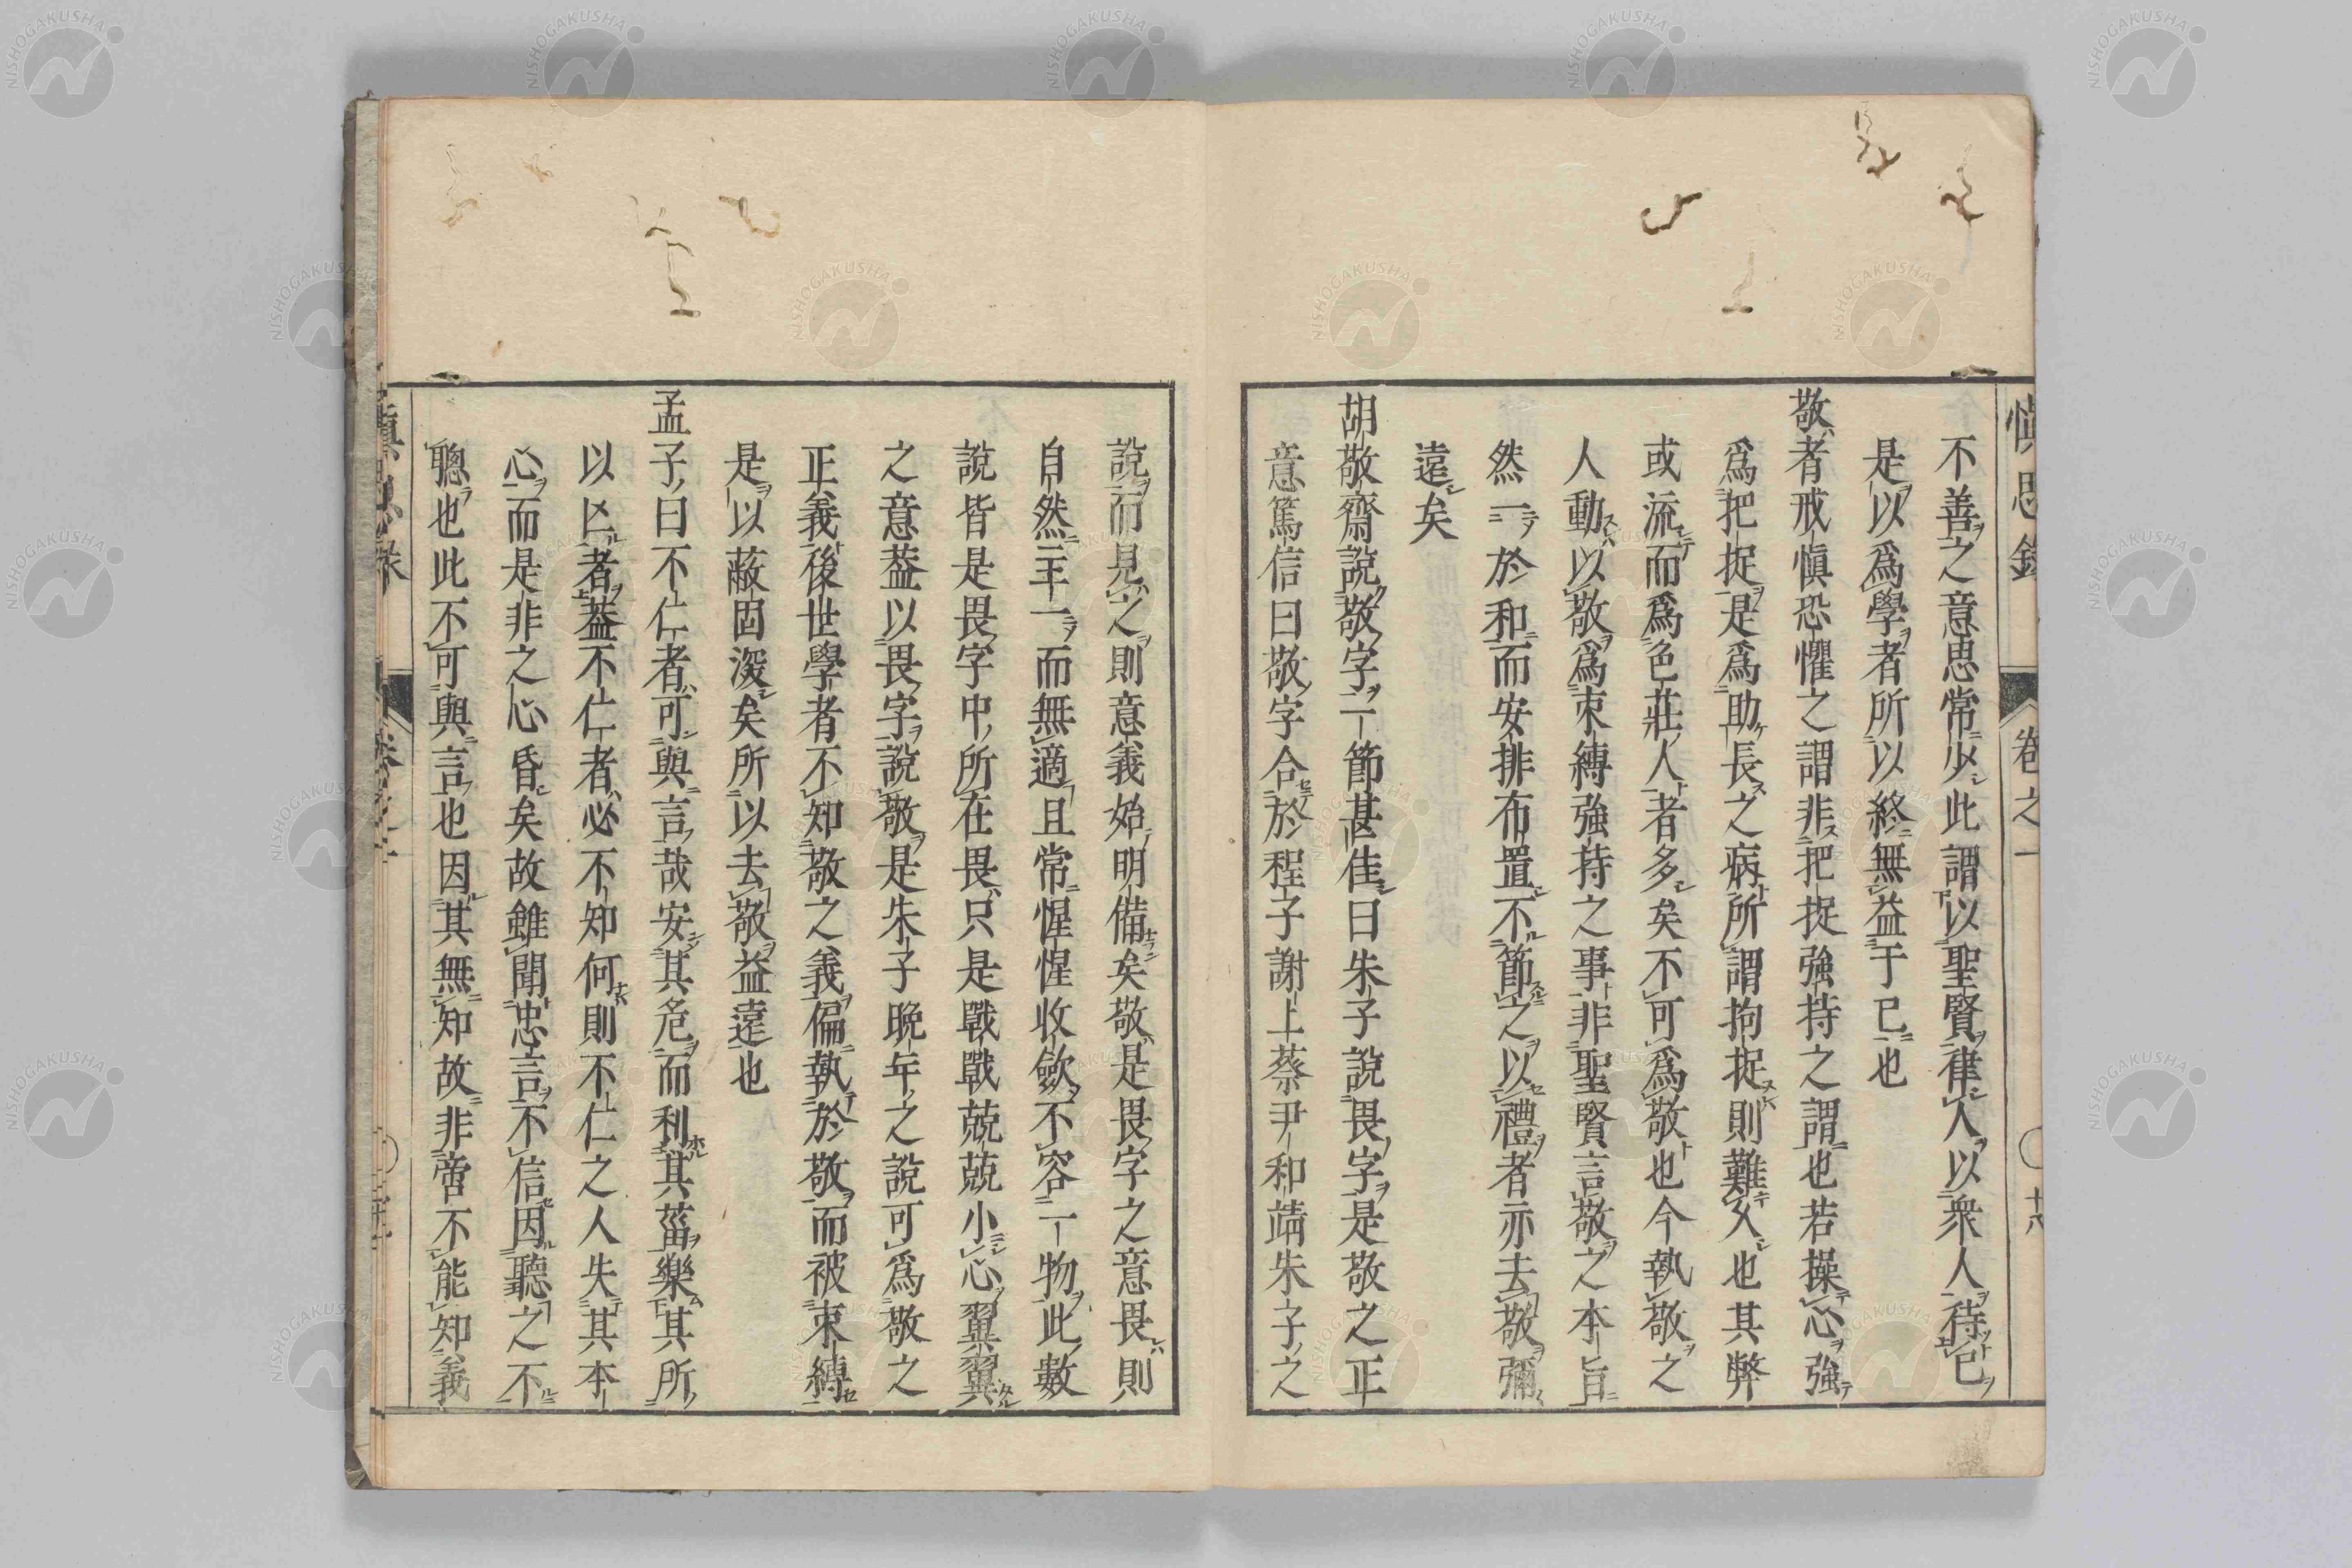 愼思錄
卷之一
不善之意思常少此謂以聖賢律人以衆人待己
是以爲學者所以終無益于己也
敬者戒愼恐懼之謂非把捉強持之謂也若操心強
爲把捉是爲助長之病所謂拘捉則難久也其弊
或流而爲色莊人者多矣不可爲敬也今執敬之
人動以敬爲束縛強持之事非聖賢言敬之本旨
然一於和而安排布置不節之以禮者亦去敬彌
遠矣
胡敬齋說敬字一節甚佳曰朱子說畏字是敬之正
意篤信曰敬字合於程子謝上蔡尹和靖朱子之
說而見之則意義始明備矣敬是畏字之意畏則
自然主一而無適且常惺惺收斂不容一物此數
說皆是畏字中所在畏只是戰戰兢兢小心翼翼
之意蓋以畏字說敬是朱子晩年之說可爲敬之
正義後世學者不知敬之義偏執於敬而被束縛
是以蔽固深矣所以去敬益遠也
孟子曰不仁者可與言哉安其危而利其菑樂其所
以亡者蓋不仁者必不知何則不仁之人失其本
心而是非之心昏矣故雖聞忠言不信因聽之不
聰也此不可與言也因其無知故非啻不能知義
愼思錄
NISHOGAKUSHA